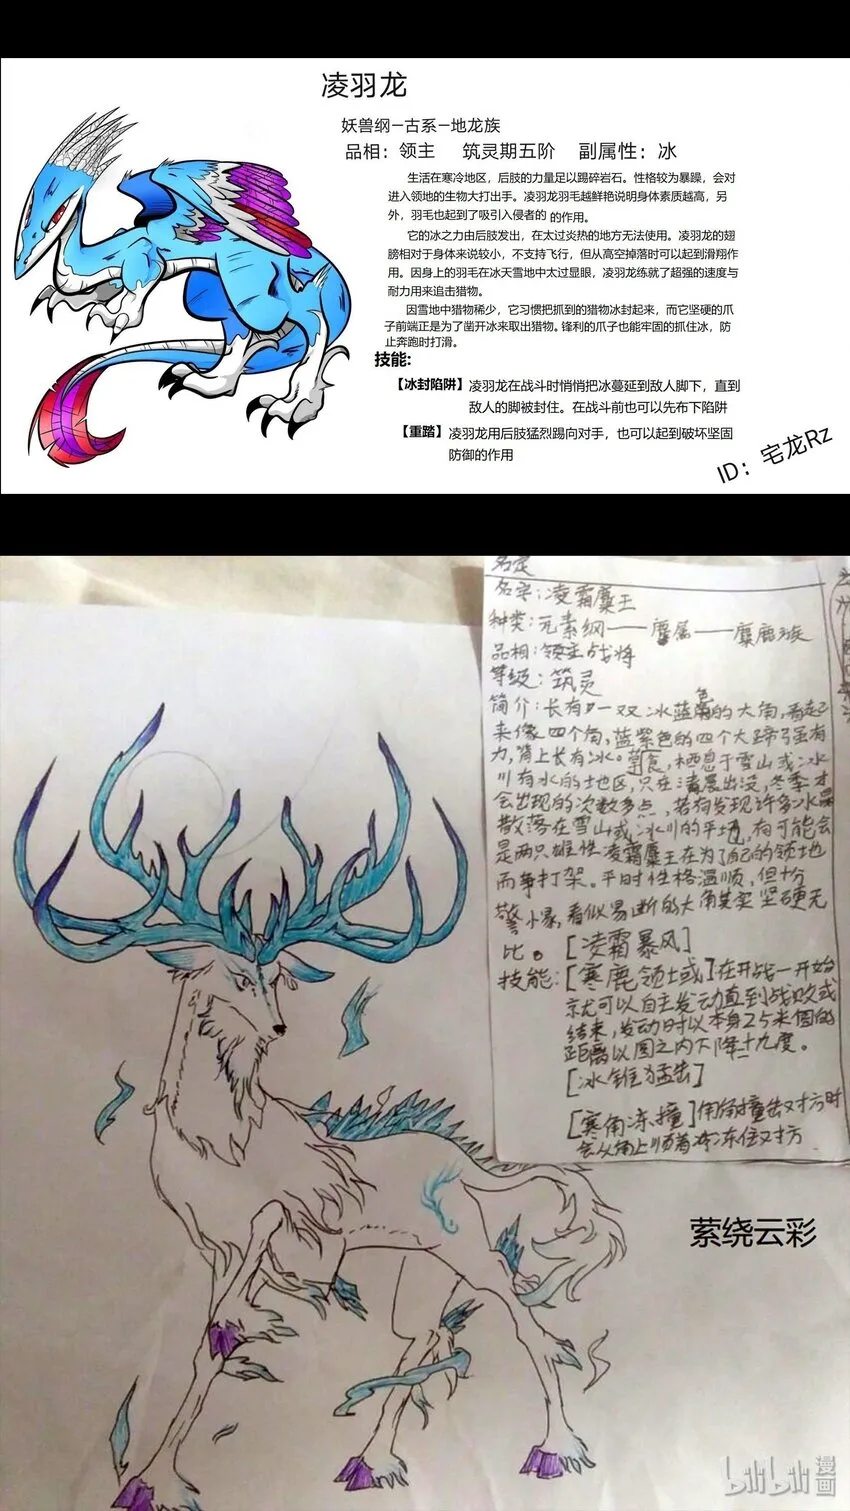 凌羽龙
妖兽纲—古系—地龙族
品相：领主 筑灵期五阶 副属性：冰
生活在寒冷地区，后肢的力量足以踢碎岩石。性格较为暴躁，会对
进入领地的生物大打出手。凌羽龙羽毛越鲜艳说明身体素质越高，另
外，羽毛也起到了吸引入侵者的 的作用。
它的冰之力由后肢发出，在太过炎热的地方无法使用。凌羽龙的翅
膀相对于身体来说较小，不支持飞行，但从高空掉落时可以起到滑翔作
用。因身上的羽毛在冰天雪地中太过显眼，凌羽龙练就了超强的速度与
耐力用来追击猎物。
因雪地中猎物稀少，它习惯把抓到的猎物冰封起来，而它坚硬的爪
子前端正是为了凿开冰来取出猎物。锋利的爪子也能牢固的抓住冰，防
止奔跑时打滑。
技能:
【冰封陷阱】凌羽龙在战斗时悄悄把冰蔓延到敌人脚下，直到
敌人的脚被封住。在战斗前也可以先布下陷阱
【重踏】凌羽龙用后肢猛烈踢向对手，也可以起到破坏坚固
防御的作用
ID：宅龙Rz
名字:凌霜麋王
种类:元素纲——麋属——麋鹿族
品相:领主战将
等级:筑灵
简介:长有一双冰蓝色的大角,看起
来像四个角,蓝紫色的四个大蹄强有
力,背上长有冰。草食,栖息于雪山或冰
川有水的地区,只在清晨出没,冬季才
会出现的次数多点,若有发现许多冰晶
散落在雪山或冰川的平地,有可能会
是两只雄性凌霜麋王在为了自己的领地
而争打架。平时性格温顺,但十分
警惕,看似易断的大角其实坚硬无
比。[凌霜暴风]
技能:[寒鹿领域]在开战一开始
就可以自主发动直到战败或
结束,发动时以本身25米圆的
距离以圆之内下降十九度。
[冰锥猛击]
[寒角冻撞]用角撞击对方时
会从角上顺着冻住对方
萦绕云彩
bilibili漫画